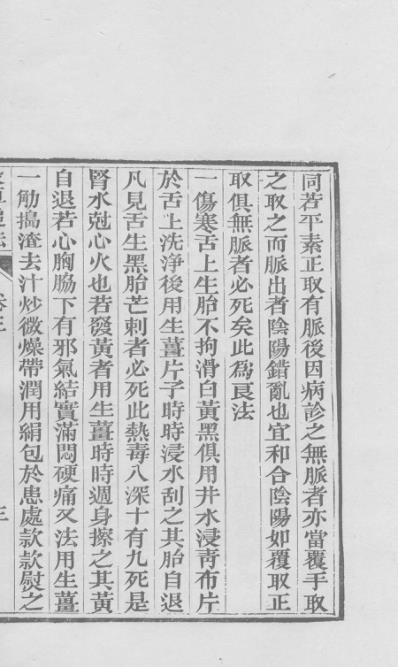 同若平素正取有脈後因病診之無脈者亦當覆手取
之取之而脈出者陰陽錯亂也宜和合陰陽如覆取正
取俱無脈者必死矣此爲良法
一傷寒舌上生胎不拘滑白黃黑俱用井水浸靑布片
於舌上洗淨後用生薑片子時時浸水刮之其胎自退
凡見舌生黑胎芒刺者必死此熱毒入深十有九死是
腎水尅心火也若發黃者用生薑時時週身擦之其黃
自退若心胸脇下有邪氣結實滿悶硬痛又法用生薑
一觔搗渣去汁炒微燥帶潤用絹包於患處款款熨之
卷三
三